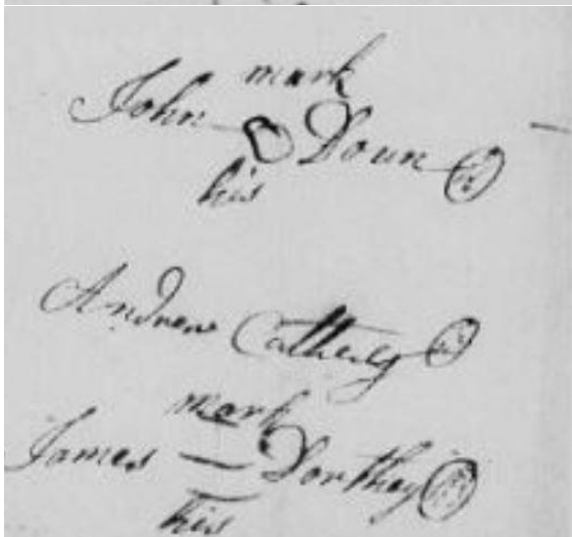 mark
John Doun
his
Andrew Cathey
mark
James Dorthey
his